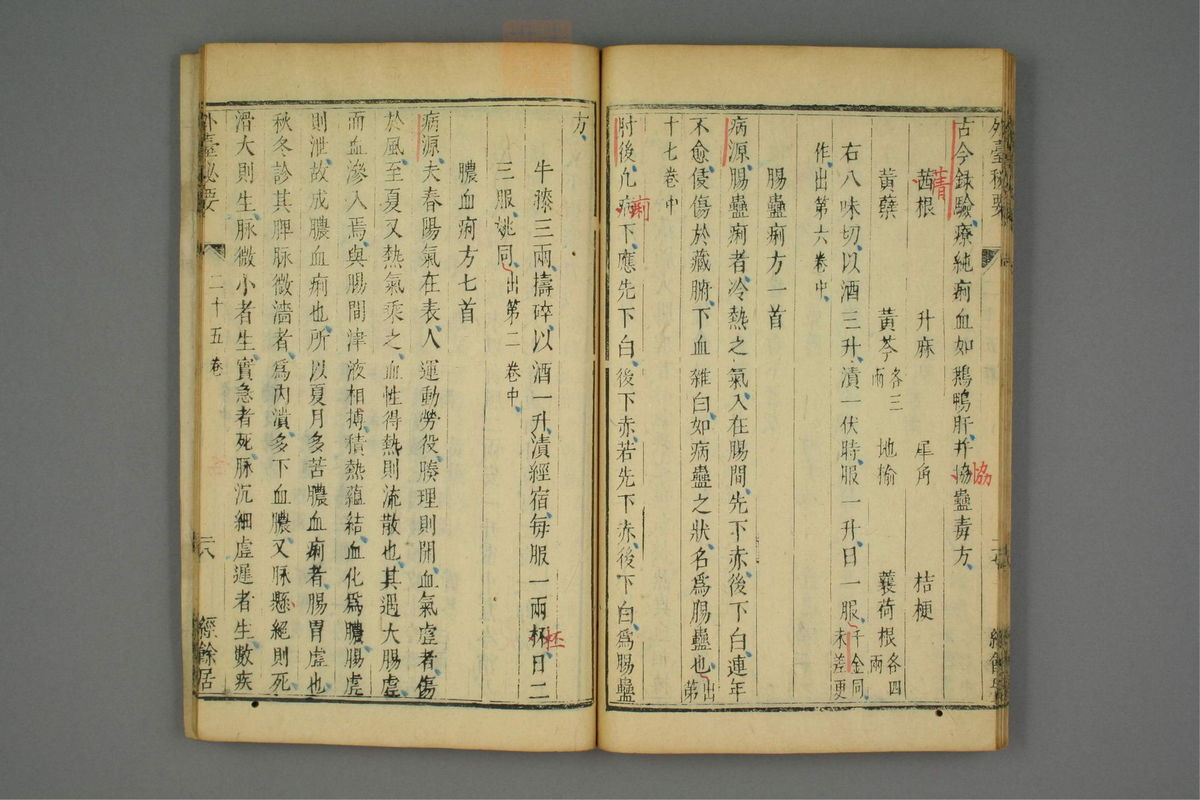 外臺秘要
古今録驗療純痢血如鵝鴨肝并協蠱毒方
協
茜根 升麻 犀角 桔梗
青
黃蘗 黃芩各三兩 地榆 蘘荷根各四兩
右八味切以酒三升漬一伏時服一升日一服千金同未差更
作出第六卷中
腸蠱痢方一首
病源腸蠱痢者冷熱之氣入在腸間先下赤後下白連年
不愈侵傷於藏腑下血雜白如病蠱之狀名爲腸蠱也出第
十七卷中
肘後凡病下應先下白後下赤若先下赤後下白爲腸蠱
痢
方
牛膝三兩擣碎以酒一升漬經宿每服一兩杯日二
柸
三服姚同出第二卷中
膿血痢方七首
病源夫春陽氣在表人運動勞役腠理則開血氣虛者傷
於風至夏又熱氣乘之血性得熱則流散也其遇大腸虛
而血滲入焉與腸間津液相搏積熱蘊結血化爲膿腸虛
則泄故成膿血痢也所以夏月多苦膿血痢者腸胃虛也
秋冬診其脾脉微濇者爲內潰多下血膿又脉懸絕則死
滑大則生脉微小者生實急者死脉沉細虛遲者生數疾
外臺秘要 二十五卷 經餘居